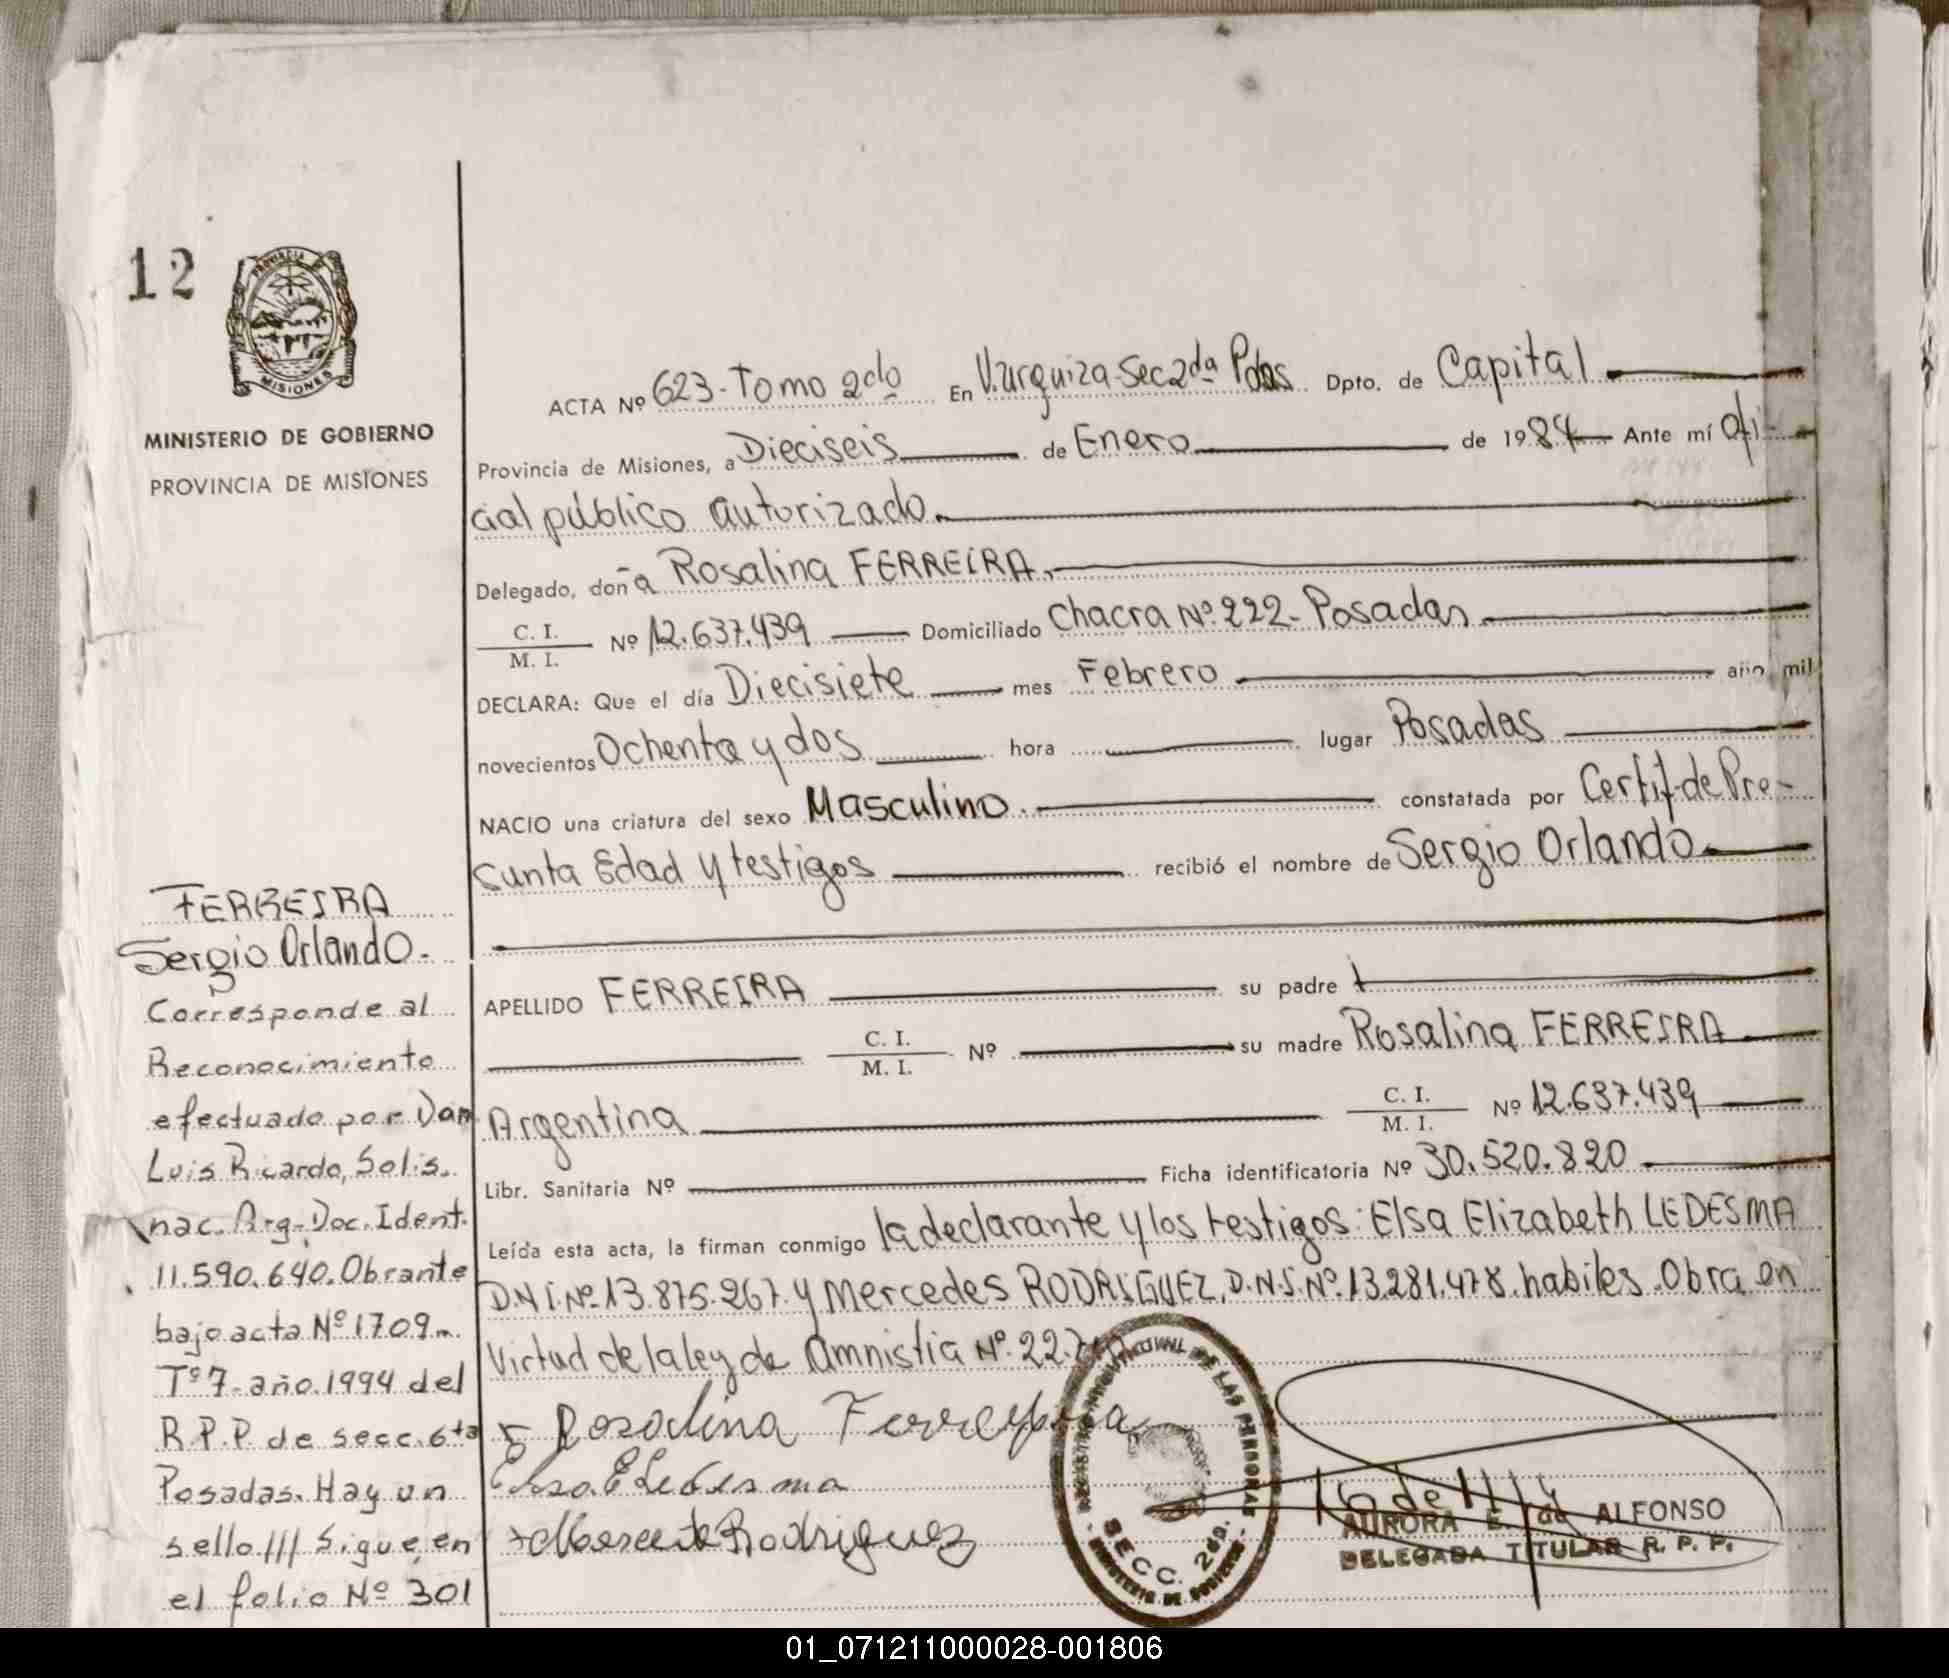 12
PROVINCIA DE
MISIONES
MINISTERIO DE GOBIERNO
PROVINCIA DE MISIONES
ACTA Nº 623-Tomo 2do En V.Urquiza-Sec 2da Pdas Dpto. de Capital
Provincia de Misiones, a Dieciseis de Enero de 1984 Ante mí Ofi-
cial público autorizado.
Delegado, doña Rosalina FERREIRA.
C. I.
M. I.
Nº 12.637.439 Domiciliado Chacra Nº 222- Posadas
DECLARA: Que el día Diecisiete mes Febrero año mil
novecientos Ochenta y dos hora lugar Posadas
NACIO una criatura del sexo Masculino. constatada por Certif-de Pre-
sunta Edad y testigos recibió el nombre de Sergio Orlando
APELLIDO FERREIRA su padre
C. I.
M. I.
Nº su madre Rosalina FERREIRA
Argentina
C. I.
M. I.
Nº 12.637.439
Libr. Sanitaria Nº Ficha identificatoria Nº 30.520.820
Leída esta acta, la firman conmigo la declarante y los testigos: Elsa Elizabeth LEDESMA
D.N.I.Nº-13.875.267. y Mercedes RODRIGUEZ. D.N.I.Nº.13.281.478. habiles. Obra en
Virtud de la ley de Amnistia Nº.22.
Rosalina Ferreyra
Elsa E Ledesma
Mercedes Rodriguez
DE LAS PERSONAS
SECC. 2da.
MINISTERIO DE GOBIERNO
AURORA E. de ALFONSO
DELEGADA TITULAR R. P. P.
FERREIRA
Sergio Orlando.
Corresponde al
Reconocimiento
efectuado por Don
Luis Ricardo, Solis.
nac. Arg-Doc. Ident.
11.590.640. Obrante
bajo acta Nº 1709
Tº 7-año.1994 del
R.P.P de secc.6ta
Posadas. Hay un
sello /// Sigue en
el folio Nº 301
01_071211000028-001806